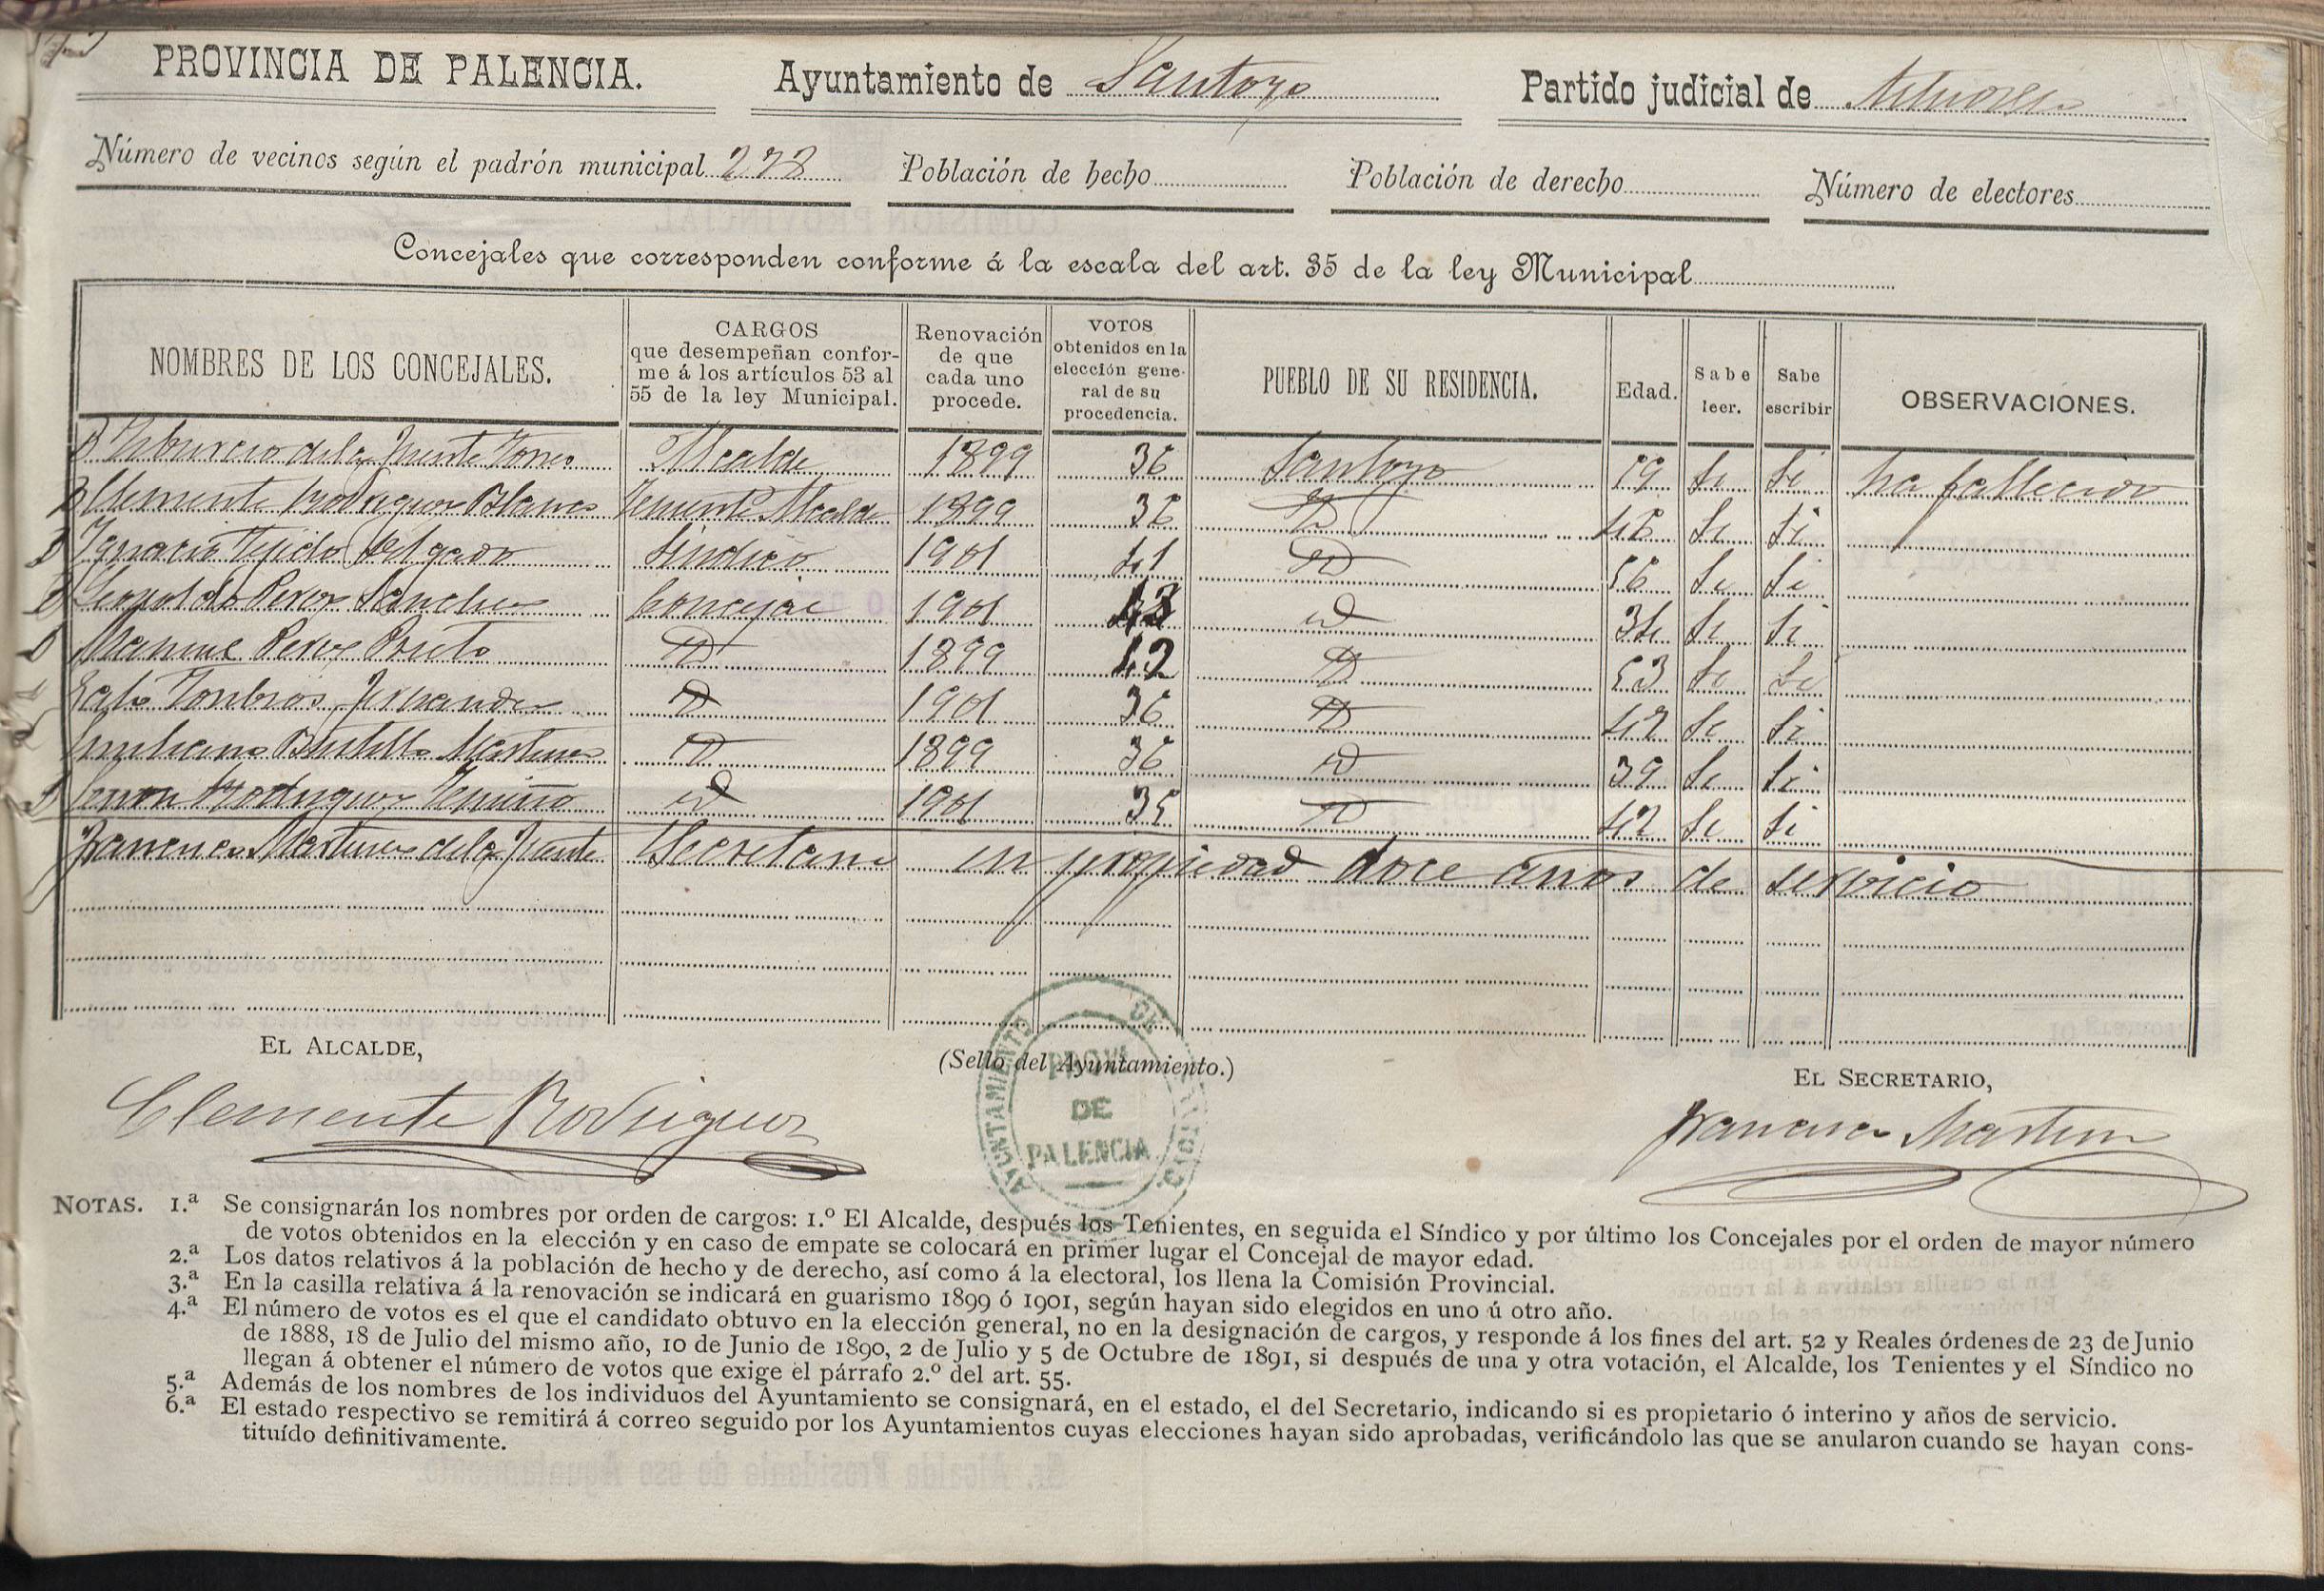 PROVINCIA DE PALENCIA. Ayuntamiento de Santoyo Partido judicial de
Número de vecinos según el padrón municipal 278 Población de hecho Población de derecho Número de electores
Concejales que corresponden conforme á la escala del art. 35 de la ley Municipal
NOMBRES DE LOS CONCEJALES. CARGOS que desempeñan conforme á los artículos 53 al 55 de la ley Municipal. Renovación de que cada uno procede. VOTOS obtenidos en la elección general de su procedencia. PUEBLO DE SU RESIDENCIA. Edad. Sabe leer. Sabe escribir OBSERVACIONES.
D Tiburcio de la Fuente Torres Alcalde 1899 36 Santoyo 59 Si Si ha fallecido
D Clemente Rodriguez Blanco Teniente Alcalde 1899 36 Id 46 Si Si
D Ignacio Tejido Delgado Sindico 1901 41 Id 56 Si Si
D Leopoldo Perez Sanchez Concejal 1901 43 Id 34 Si Si
D Manuel Perez Prieto Id 1899 42 Id 53 Si Si
Tombros Fernandez Id 1901 36 Id 42 Si Si
Emiliano Bustillo Martinez Id 1899 36 Id 39 Si Si
D Zenon Rodriguez Id 1901 35 Id 42 Si Si
Francisco Martinez de la Fuente Secretario en propiedad doce años de servicio
EL ALCALDE,
(Sello del Ayuntamiento.)
EL SECRETARIO,
AYUNTAMIENTO DE
PROVª
DE
PALENCIA
Clemente Rodriguez
Francisco Martinez
NOTAS. 1.ª Se consignarán los nombres por orden de cargos: 1.º El Alcalde, después los Tenientes, en seguida el Síndico y por último los Concejales por el orden de mayor número
de votos obtenidos en la elección y en caso de empate se colocará en primer lugar el Concejal de mayor edad.
2.ª Los datos relativos á la población de hecho y de derecho, así como á la electoral, los llena la Comisión Provincial.
3.ª En la casilla relativa á la renovación se indicará en guarismo 1899 ó 1901, según hayan sido elegidos en uno ú otro año.
4.ª El número de votos es el que el candidato obtuvo en la elección general, no en la designación de cargos, y responde á los fines del art. 52 y Reales órdenes de 23 de Junio
de 1888, 18 de Julio del mismo año, 10 de Junio de 1890, 2 de Julio y 5 de Octubre de 1891, si después de una y otra votación, el Alcalde, los Tenientes y el Síndico no
llegan á obtener el número de votos que exige el párrafo 2.º del art. 55.
5.ª Además de los nombres de los individuos del Ayuntamiento se consignará, en el estado, el del Secretario, indicando si es propietario ó interino y años de servicio.
6.ª El estado respectivo se remitirá á correo seguido por los Ayuntamientos cuyas elecciones hayan sido aprobadas, verificándolo las que se anularon cuando se hayan cons-
tituído definitivamente.